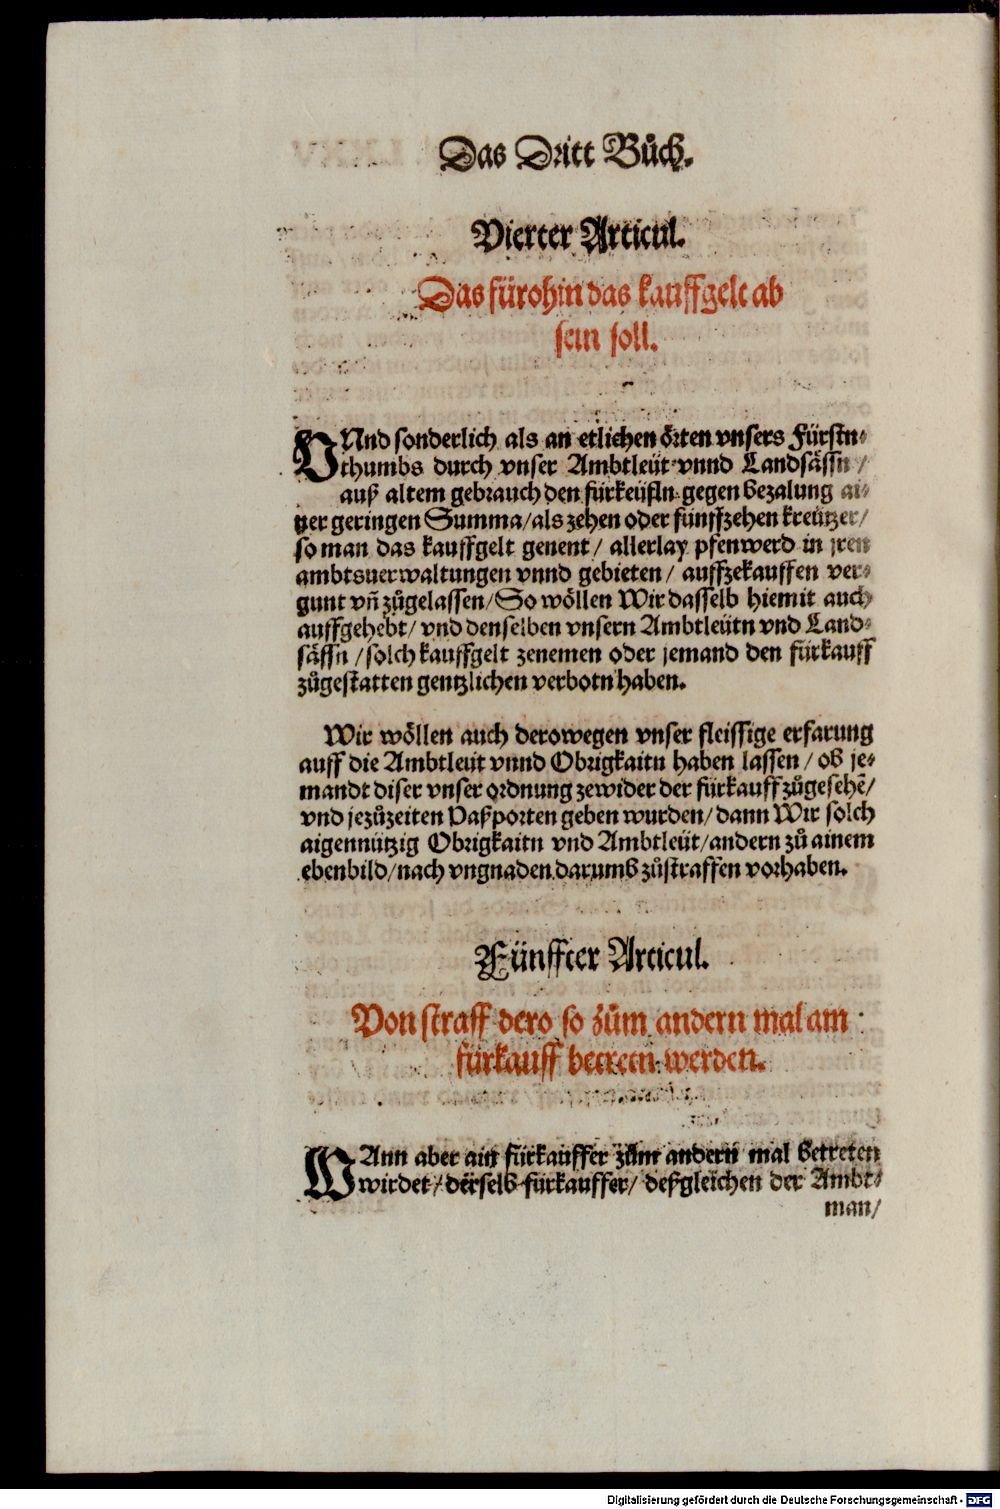 Das Dritt Bůch.
Vierter Articul.
Das fürohin das kauffgelt ab
sein soll.
VNnd sonderlich als an etlichen örten vnsers Fürstn⸗
thumbs durch vnser Ambtleüt vnnd Landsässn /
auß altem gebrauch den fürkeüfln gegen bezalung ai⸗
ner geringen Summa/als zehen oder fünffzehen kreützer/
so man das kauffgelt genent / allerlay pfenwerd in jren
ambtsuerwaltungen vnnd gebieten / auffzekauffen ver⸗
gunt vñ zůgelassen/So wöllen Wir dasselb hiemit auch
auffgehebt/ vnd denselben vnsern Ambtleütn vnd Land⸗
sässn /solch kauffgelt zenemen oder jemand den fürkauff
zůgestatten gentzlichen verbotn haben.
Wir wöllen auch derowegen vnser fleissige erfarung
auff die Ambtleüt vnnd Obrigkaitn haben lassen / ob je⸗
mandt diser vnser ordnung zewider der fürkauff zůgesehẽ/
vnd jezůzeiten Paßporten geben wurden/ dann Wir solch
aigennützig Obrigkaitn vnd Ambtleüt/andern zů ainem
ebenbild/nach vngnaden darumb zůstraffen vorhaben.
Fünffter Articul.
Von straff dero so zům andern mal am
fürkauff betretn werden.
WAnn aber ain fürkauffer zům andern mal betreten
wirdet/ derselb fürkauffer/ deßgleichen der Ambt⸗
man/
Digitalisierung gefördert durch die Deutsche Forschungsgemeinschaft - DFG